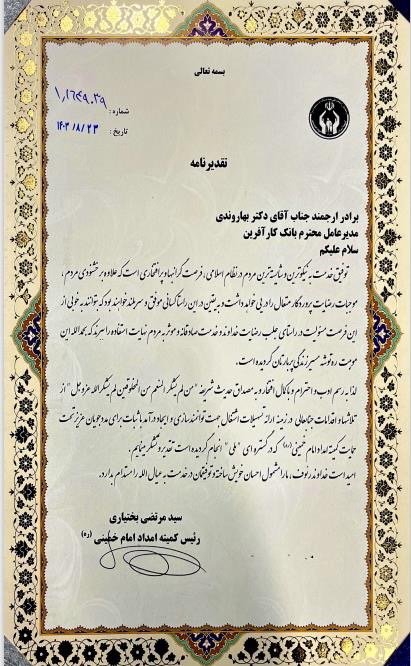 بسمه تعالی
شماره : ۱,۱۶۴۹۰۳۹
تاریخ : ۱۴۰۳/۸/۲۳
تقدیرنامه
برادر ارجمند جناب آقای دکتر بهاروندی
مدیرعامل محترم بانک کارآفرین
سلام علیکم
توفیق خدمت به نیکوترین و شایسته‌ترین مردم در نظام اسلامی، فرصت گرانبها و پر افتخاری است که علاوه بر خشنودی مردم،
موجبات رضایت پروردگار متعال را در پی خواهد داشت و به یقین در این راستا کسانی موفق و سربلند خواهند بود که توانسته به خوبی از
این فرصت مسئولیت در راستای جلب رضایت خداوند و خدمت صادقانه و موثر به مردم نهایت استفاده را ببرند که بحمدالله این
موهبت ره توشه مسیر زندگی پربارتان گردیده است.
لذا به رسم ادب و احترام و با کمال افتخار و به مصداق حدیث شریفه "من لم یشکر المنعم من المخلوقین لم یشکر الله عز و جل" از
تلاشها و اقدامات جنابعالی در زمینه ارائه تسهیلات اشتغال جهت توانمندسازی و ایجاد درآمد با ثبات برای مددجویان عزیز تحت
حمایت کمیته امداد امام خمینی (ره) که در گستره ای "ملی" انجام گردیده است تقدیر و تشکر مینمایم.
امید است خداوند رئوف، ما را مشمول احسان خویش ساخته و توفیقتان در خدمت به عیال الله را مستدام بدارد.
سید مرتضی بختیاری
رئیس کمیته امداد امام خمینی (ره)